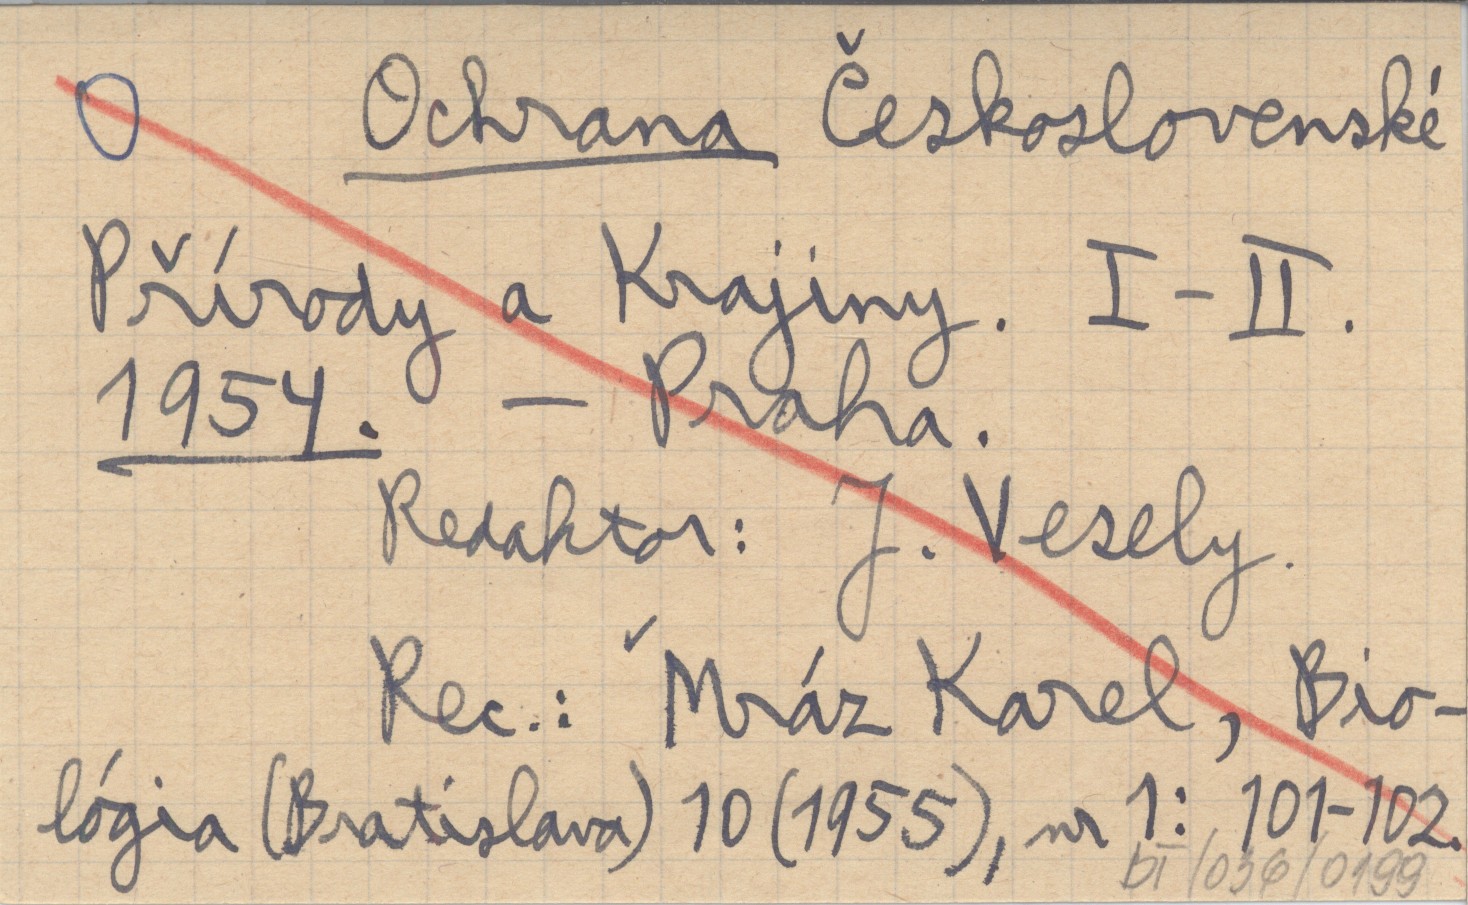 O Ochrana Československé
Přírody a Krajiny. I-II.
1954. — Praha.
Redaktor: J. Vesely.
Rec.: Mráz Karel, Bio-
lógia (Bratislava) 10 (1955), nr 1: 101-102.
bī/036/0199